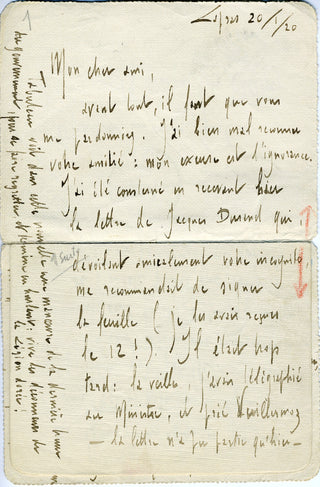 20/1/20
Mon cher ami,
avant tout, il faut que vous
me pardonniez. J'ai bien mal reconnu
votre amitié : mon excuse est l'ignorance.
J'ai été consterné en recevant hier
la lettre de Jacques Durand qui,
dévoilant amicalement votre incognito,
me recommandait de signer
la feuille ( je les avais reçues
le 12 ! ). Il était trop
tard : la veille, j'avais télégraphié
au Ministre, et prié Vuillermoz
— la lettre n'a pu partir qu'hier —
voit dans cette nouvelle une manœuvre de la dernière heure
du gouvernement, pour se faire regretter
la Légion d'hon!